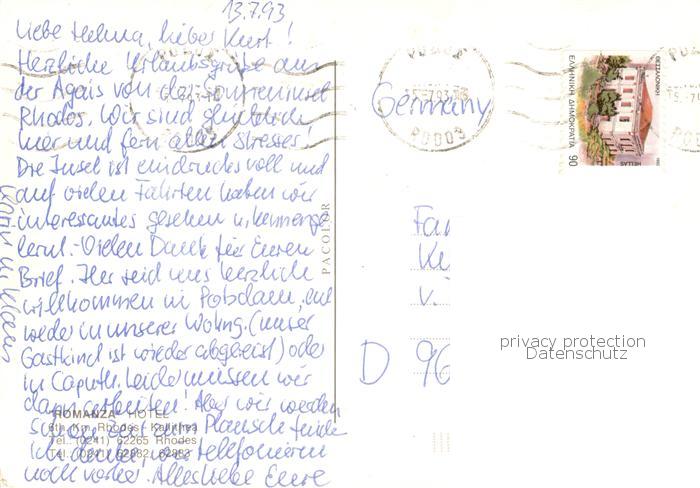 13.7.93
Liebe Helma, lieber Kurt!
Herzliche Urlaubsgrüße aus
der Ägais von der Sonneninsel
Rhodos. Wir sind glücklich
hier und fern allen Stresses!
Die Insel ist eindrucksvoll und
auf vielen Fahrten haben wir
interessantes gesehen u. kennenge
lernt. - Vielen Dank für Euren
Brief. Ihr seid uns herzlich
willkommen in Potsdam, ent
weder in unserer Wohng. (unser
Gastkind ist wieder abgereist) oder
in Caputh. Leider müssen wir
dann arbeiten! Aber wir werden
schon Zeit zum Plausch finde
Ich denke, wir telefonieren
noch vorher. Alles Liebe Eure
ROMANZA HOTEL
6th Km. Rhodes - Kallithea
Tel. (0241) 62265 Rhodes
Tel. (0241)
PACOLOR
Germany
ΡΟΔΟΣ
ΘΕΣΣΑΛΟΝΙΚΗ
ΕΛΛΗΝΙΚΗ ΔΗΜΟΚΡΑΤΙΑ 90
HELLAS
Fa
Ku
v.
D 96
privacy protection
Datenschutz